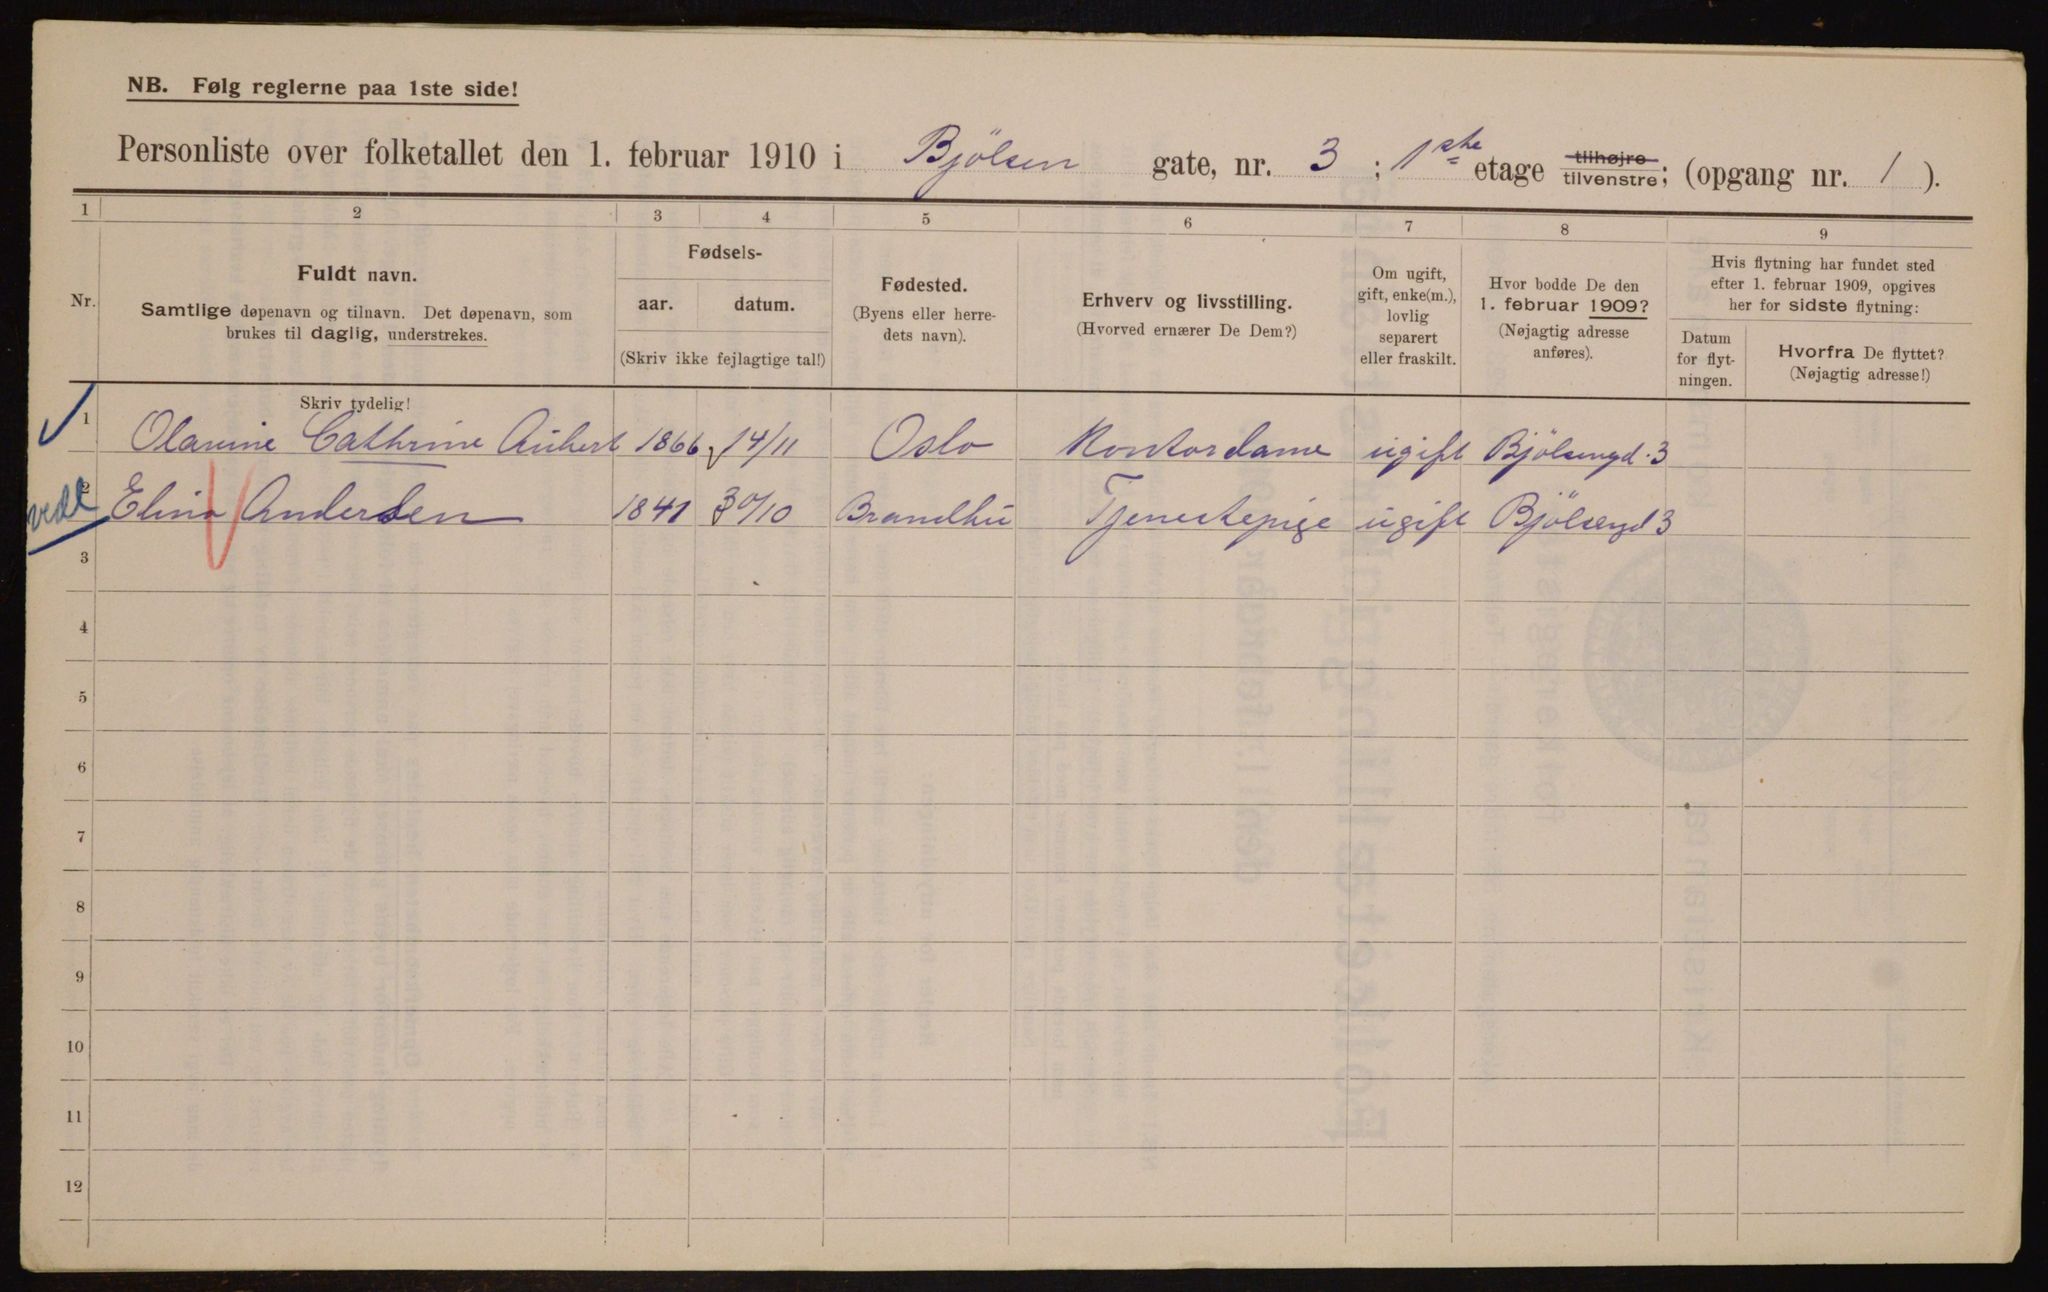 NB. Følg reglerne paa 1ste side!
Personliste over folketallet den 1. februar 1910 i Bjölsen gate, nr. 3 ; 1ste etage tilhøjre tilvenstre; (opgang nr. 1 ).
1 2 3 4 5 6 7 8 9
Nr.
Fuldt navn.
Samtlige døpenavn og tilnavn. Det døpenavn, som
brukes til daglig, understrekes.
Skriv tydelig!
Fødsels-
aar. datum.
(Skriv ikke fejlagtige tal!)
Fødested.
(Byens eller herre-
dets navn).
Erhverv og livsstilling.
(Hvorved ernærer De Dem?)
Om ugift,
gift, enke(m.),
lovlig
separert
eller fraskilt.
Hvor bodde De den
1. februar 1909?
(Nøjagtig adresse
anføres).
Hvis flytning har fundet sted
efter 1. februar 1909, opgives
her for sidste flytning:
Datum
for flyt-
ningen.
Hvorfra De flyttet?
(Nøjagtig adresse!)
1 Olarine Cathrine Aubert 1866 14/11 Oslo Kontordame ugift Bjölsengd. 3
2 Elina Andersen 1841 30/10 Brandbu Tjenestepige ugift Bjölsengd 3
3
4
5
6
7
8
9
10
11
12